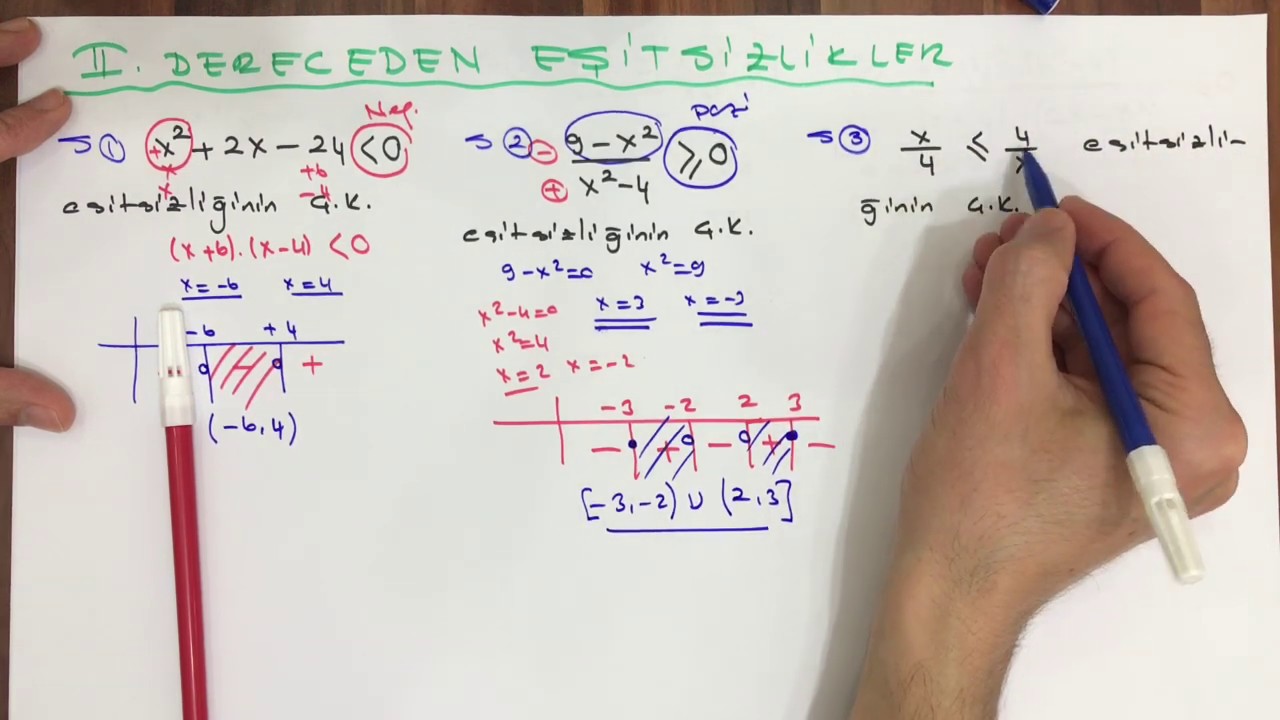 II. DERECEDEN EŞİTSİZLİKLER
Neg.
→ ① x² + 2x - 24 < 0
+
x +6
x -4
esitsizliğinin Ç.K.
(x+6).(x-4) < 0
x = -6 x = 4
-6 +4
+
(-6,4)
pozi
→ ② - 9 - x² ≥ 0
+ x² - 4
esitsizliğinin Ç.K.
9 - x² = 0 x² = 9
x = 3 x = -3
x² - 4 = 0
x² = 4
x = 2 x = -2
-3 -2 2 3
- + - + -
[-3,-2) ∪ (2,3]
→ ③ x/4 ≤ 4/x esitsizli-
ğinin Ç.K.